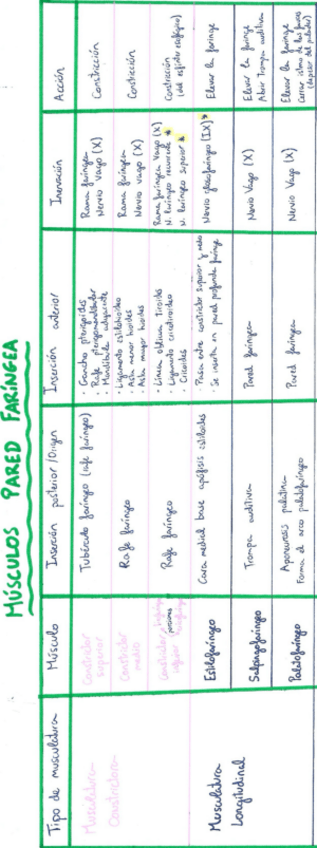 MÚSCULOS PARED FARÍNGEA
Tipo de musculatura
Músculo
Inserción posterior/Origen
Inserción anterior
Inervación
Acción
Musculatura
Constrictora
Constrictor
superior
Tubérculo faríngeo (rafe faríngeo)
· Gancho pterigoides
· Rafe pterigomandibular
· Mandíbula adyacente
Rama faríngea
Nervio vago (X)
Constricción
Constrictor
medio
Rafe faríngeo
· Ligamento estilohioideo
· Asta menor hioides
· Asta mayor hioides
Rama faríngea
Nervio vago (X)
Constricción
Constrictor
inferior
Rafe faríngeo
· Línea oblicua tiroides
· Ligamento cricotiroideo
· Cricoides
Rama faríngea Vago (X)
N. laríngeo recurrente
N. laríngeo superior
Constricción
(del esfínter esofágico)
Musculatura
Longitudinal
Estilofaríngeo
Cara medial base apófisis estiloides
· Pasa entre constrictor superior y medio
· Se inserta en pared profunda faringe
Nervio glosofaríngeo (IX)
Elevar la faringe
Salpingofaríngeo
Trompa auditiva
Pared faríngea
Nervio Vago (X)
Elevar la faringe
Abrir Trompa auditiva
Palatofaríngeo
Aponeurosis palatina
Forma el arco palatofaríngeo
Pared faríngea
Nervio Vago (X)
Elevar la faringe
Cerrar istmo de las fauces
(depresor del paladar)